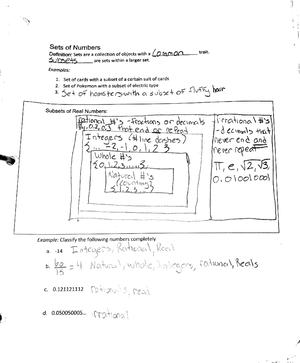 Sets of Numbers
Definition: Sets are a collection of objects with a common trait.
Subsets are sets within a larger set.
Examples:
1. Set of cards with a subset of a certain suit of cards
2. Set of Pokemon with a subset of electric type
3. Set of hamsters with a subset of fluffy hair
Subsets of Real Numbers:
rational #'s - fractions or decimals
that end or repeat
Integers (# line dashes)
{... -2, -1, 0, 1, 2 }
Whole #'s
{0, 1, 2, ...}
Natural #'s
(counting)
{1, 2, 3 ...}
irrational #'s
- decimals that
never end and
never repeat
π, e, √2, √3,
0.010010001
Example: Classify the following numbers completely
a. -14 Integers, Rational, Real
b. 60/15 = 4 Natural, whole, Integers, rational, Reals
c. 0.121121112 rational, real
d. 0.050050005... irrational